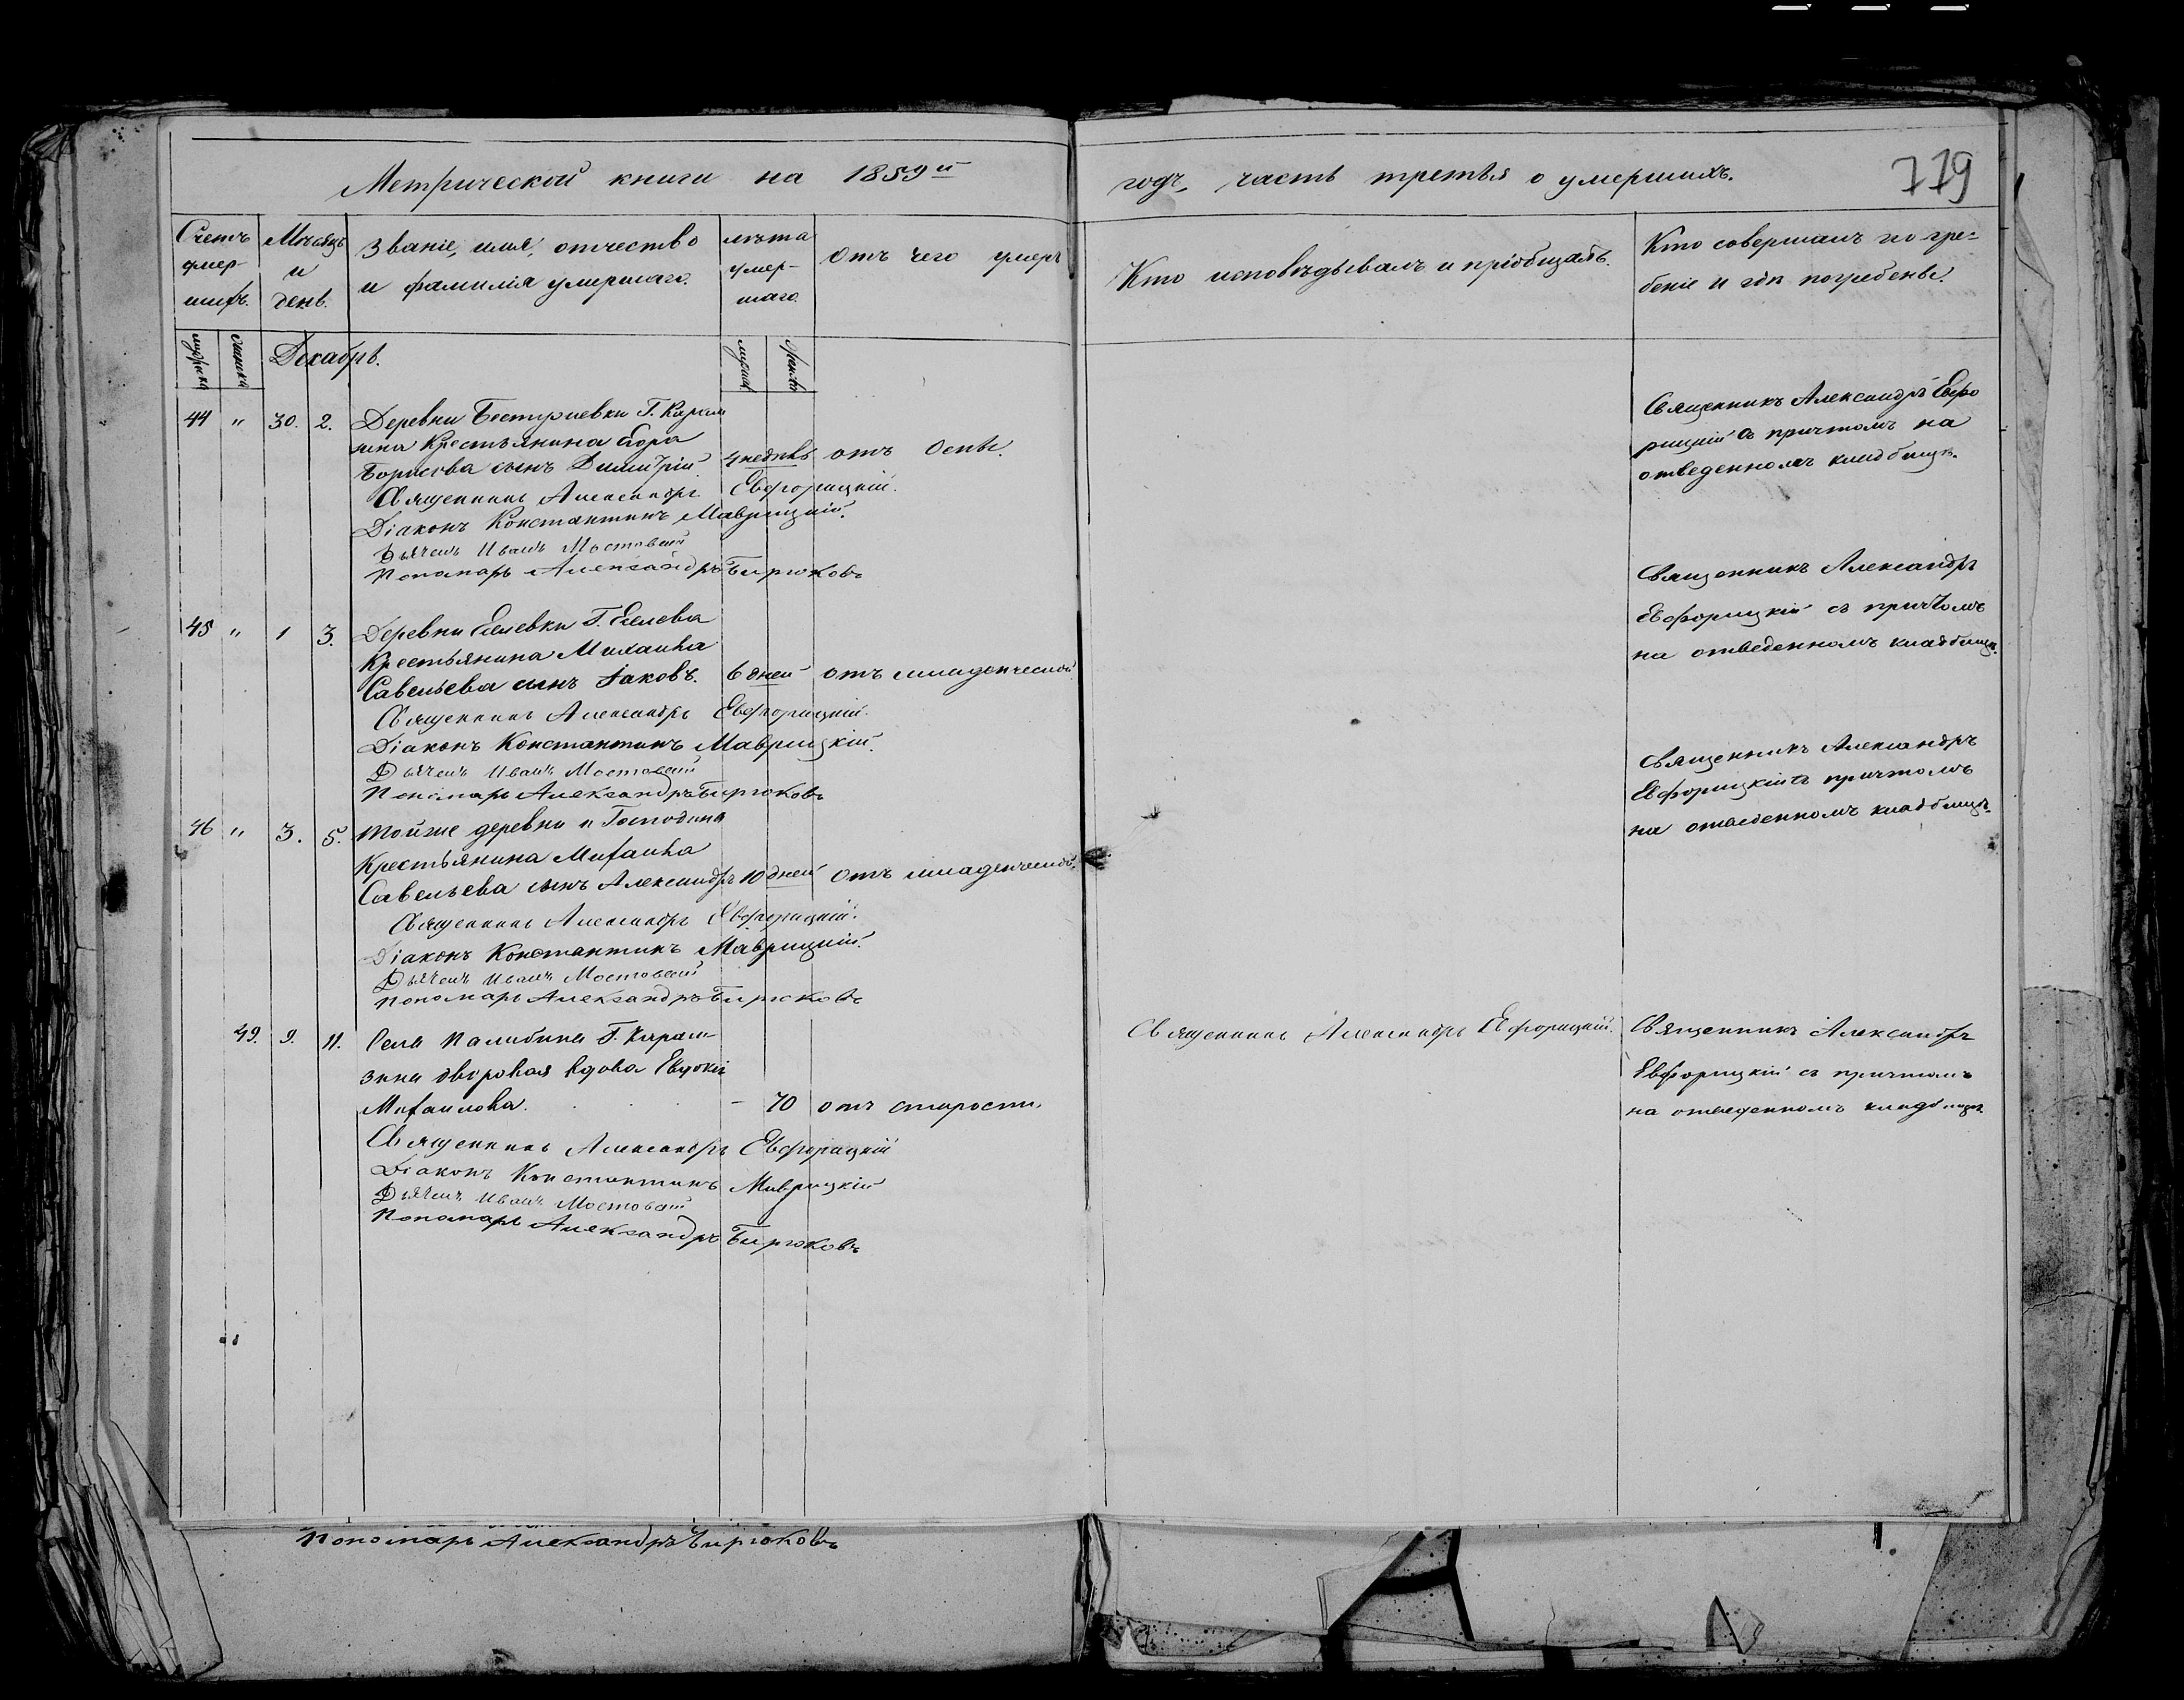 Метрической книги на 1859й
годъ, часть третья о умершихъ.
779
Счетъ умер-шихъ.
Мѣсяцъ и день.
Званіе, имя, отчество
и фамилія умершаго.
лѣта умер-шаго.
отъ чего умеръ
Кто исповѣдывалъ и пріобщалъ.
Кто совершалъ погре-
беніе и гдѣ погребены.
Декабрь.
44 " 30. 2. Деревни Г. Карам
зина Крестьянина Егора
Борисова сынъ Димитрій 4 недѣль отъ Оспы.
Священникъ Александръ Евфорицкій.
Діаконъ Константинъ Маврицкій.
Дьячекъ Иванъ Мостовскій
Пономарь Александръ Бирюковъ
Священникъ Александръ Евфо
рицкій съ причтомъ на
отведенномъ кладбищѣ.
45 " 1 3. Деревни Г.
Крестьянина Михаила
Савельева сынъ Іаковъ. 6 дней отъ младенческой
Священникъ Александръ Евфорицкій.
Діаконъ Константинъ Маврицкій.
Дьячекъ Иванъ Мостовскій
Пономарь Александръ Бирюковъ
Священникъ Александръ
Евфорицкій съ причтомъ
на отведенномъ кладбищѣ.
46 " 3. 5. Тойже деревни и Господина
Крестьянина Михаила
Савельева сынъ Александръ 10 дней отъ младенческой.
Священникъ Александръ Евфорицкій.
Діаконъ Константинъ Маврицкій.
Дьячекъ Иванъ Мостовскій
Пономарь Александръ Бирюковъ
Священникъ Александръ
Евфорицкій съ причтомъ
на отведенномъ кладбищѣ.
49. 9. 11. Села Палибина Г. Карам-
зина дворовая вдова Евдокія
Михаилова. - 70 отъ старости.
Священникъ Александръ Евфорицкій
Діаконъ Константинъ Маврицкій
Дьячекъ Иванъ Мостовскій
Пономарь Александръ Бирюковъ
Священникъ Александръ Евфорицкій.
Священникъ Александръ
Евфорицкій съ причтомъ
на отведенномъ кладбищѣ
Пономарь Александръ Бирюковъ